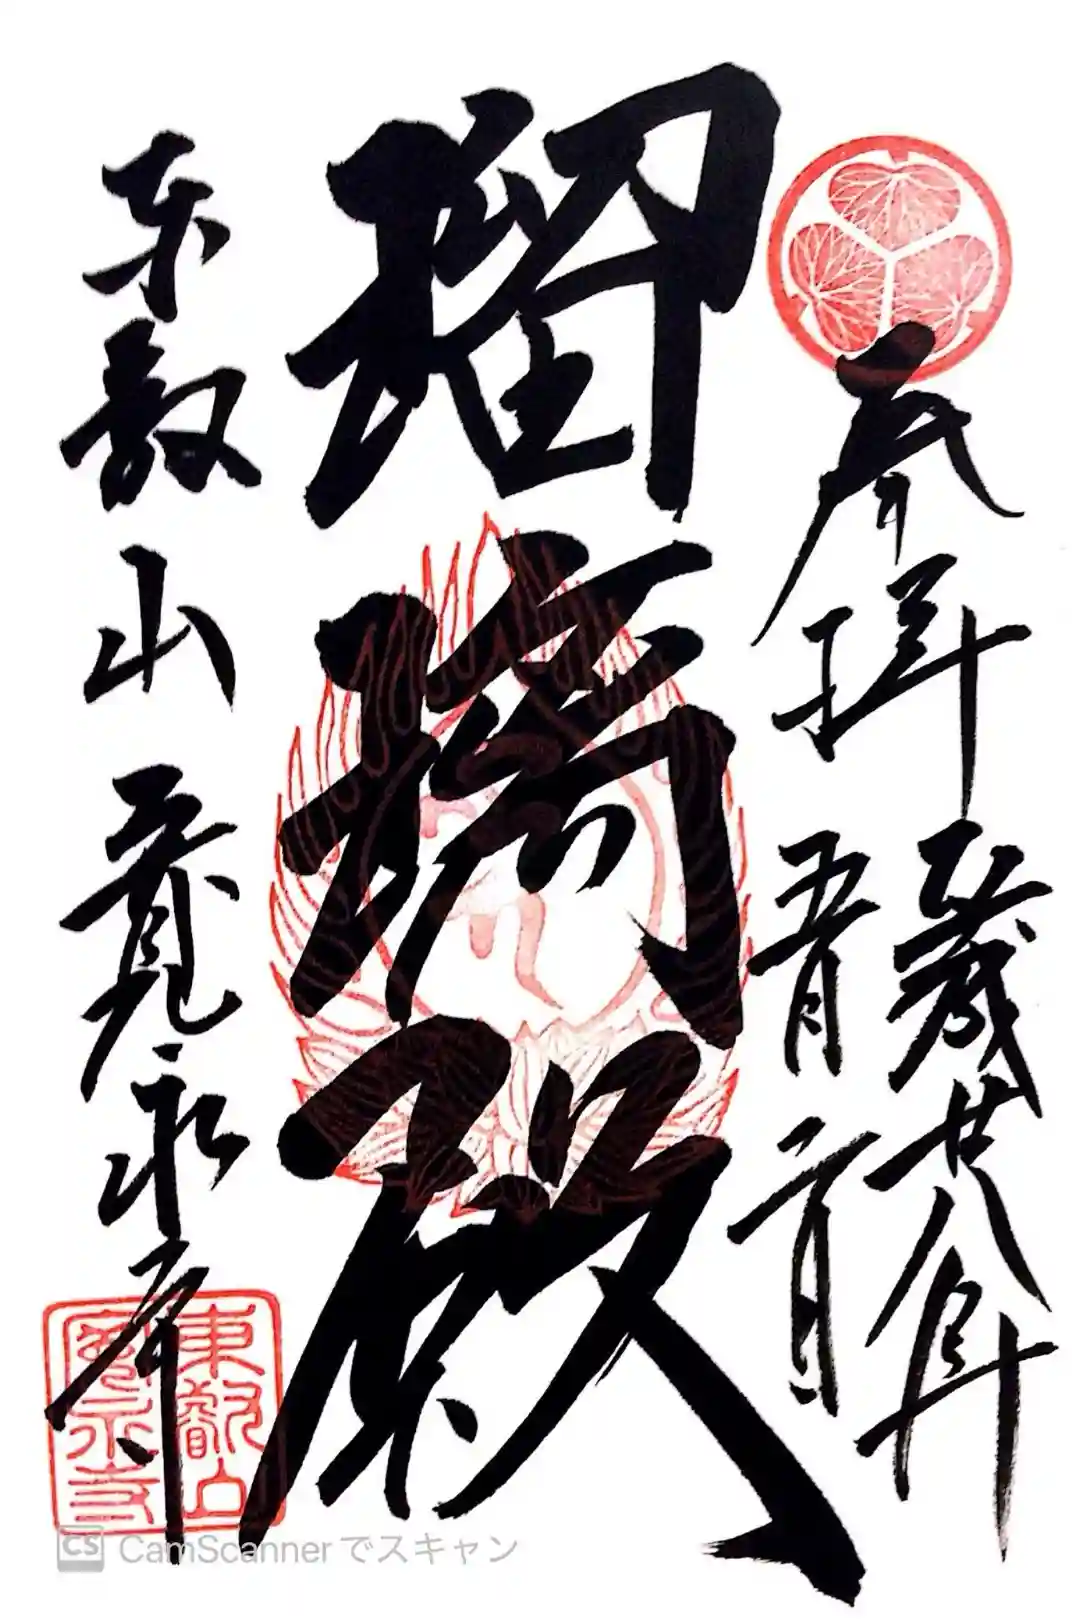 奉拝
平成廿八年
五月二日
瑠璃殿
東叡山 寛永寺
東叡山
寛永寺
CS CamScannerでスキャン